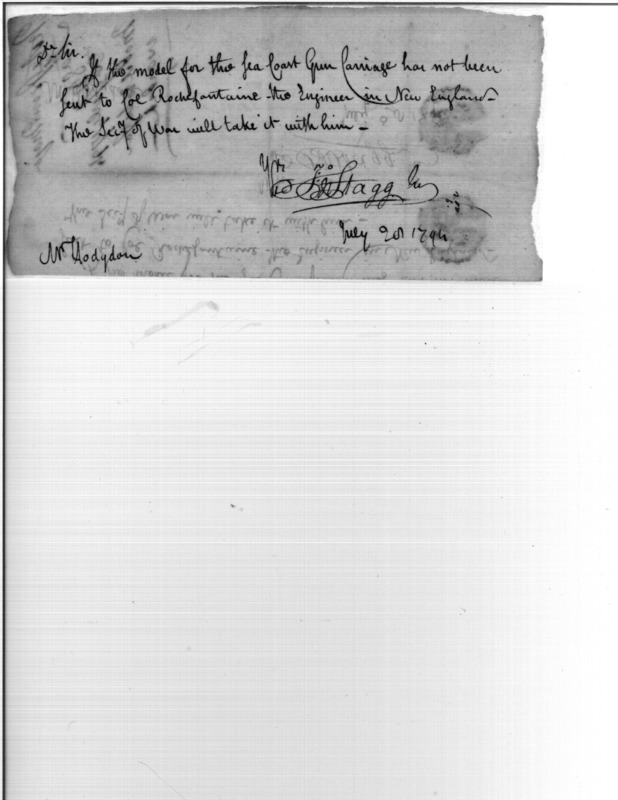 Dr Sir.
If the model for the Sea Coast Gun Carriage has not been
sent to Col Rochefontaine the Engineer in New England –
The Secy of War will take it with him –
Yrs
Jno Stagg Jr
July 28 1794
Mr Hodgdon